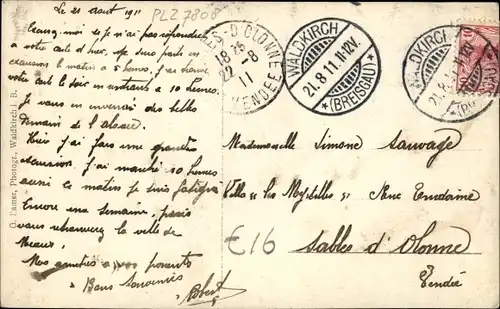 Le 21 Aout 1911
PLZ 7808
Excusez moi si je n'ai pas répondu
a votre carte d'hier. Me suis parti en
excursion le matin a 5 heures, j'ai
carte le soir en rentrant a 10 heures.
Je vous en enverrai des belles
demain de l'Alsace.
Hier j'ai fais une grande
excursion. J'ai marché 10 heures
aussi ce matin je suis fatigué
Encore une semaine, puis
vous la ville de
Meaux.
Mes amitiés a vos parents
Bons Souvenirs
Robert
G. Photogr., Waldkirch i. B.
LES-D'OLONNE
18 25
22 -8
11
VENDÉE
WALDKIRCH
21.8.11.11-12V.
* (BREISGAU) *
DKIRCH
21.8.
10
Mademoiselle Simone Sauvage
Villa "les Myrtilles" Rue
€16
Sables d'Olonne
Vendée